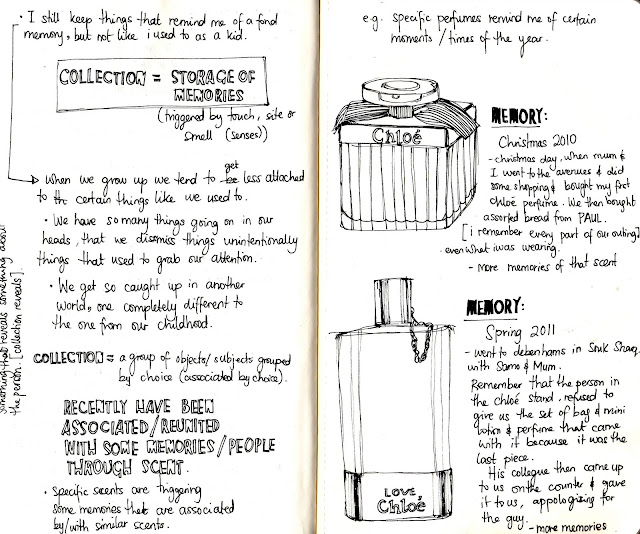 • I still keep things that remind me of a fond
memory, but not like i used to as a kid.
COLLECTION = STORAGE OF
MEMORIES
(triggered by touch, site or
smell (senses))
get
when we grow up we tend to be less attached
to the certain things like we used to.
• We have so many things going on in our
heads, that we dismiss things unintentionally
things that used to grab our attention.
• We get so caught up in another
world, one completely different to
the one from our childhood.
something that reveals something about
the person. [collection reveals].
COLLECTION = a group of objects/subjects grouped
by choice (associated by choice).
RECENTLY HAVE BEEN
ASSOCIATED/REUNITED
WITH SOME MEMORIES/PEOPLE
THROUGH SCENT.
• specific scents are triggering
some memories that are associated
by/with similar scents.
e.g. specific perfumes remind me of certain
moments/times of the year.
Chloé
MEMORY:
Christmas 2010
- christmas day, when mum &
I went to the avenues & did
some shopping & bought my first
Chloé perfume. We then bought
assorted bread from PAUL.
[i remember every part of our outing]
even what i was wearing.
- More memories of that scent
LOVE,
Chloé
MEMORY:
Spring 2011
- went to debenhams in Souk Sharq
with Samo & Mum.
Remember that the person in
the chloé stand, refused to
give us the set of bag & mini
lotion & perfume that came
with it because it was the
last piece.
His collegue then came up
to us on the counter & gave
it to us, appologizing for
the guy.
- more memories